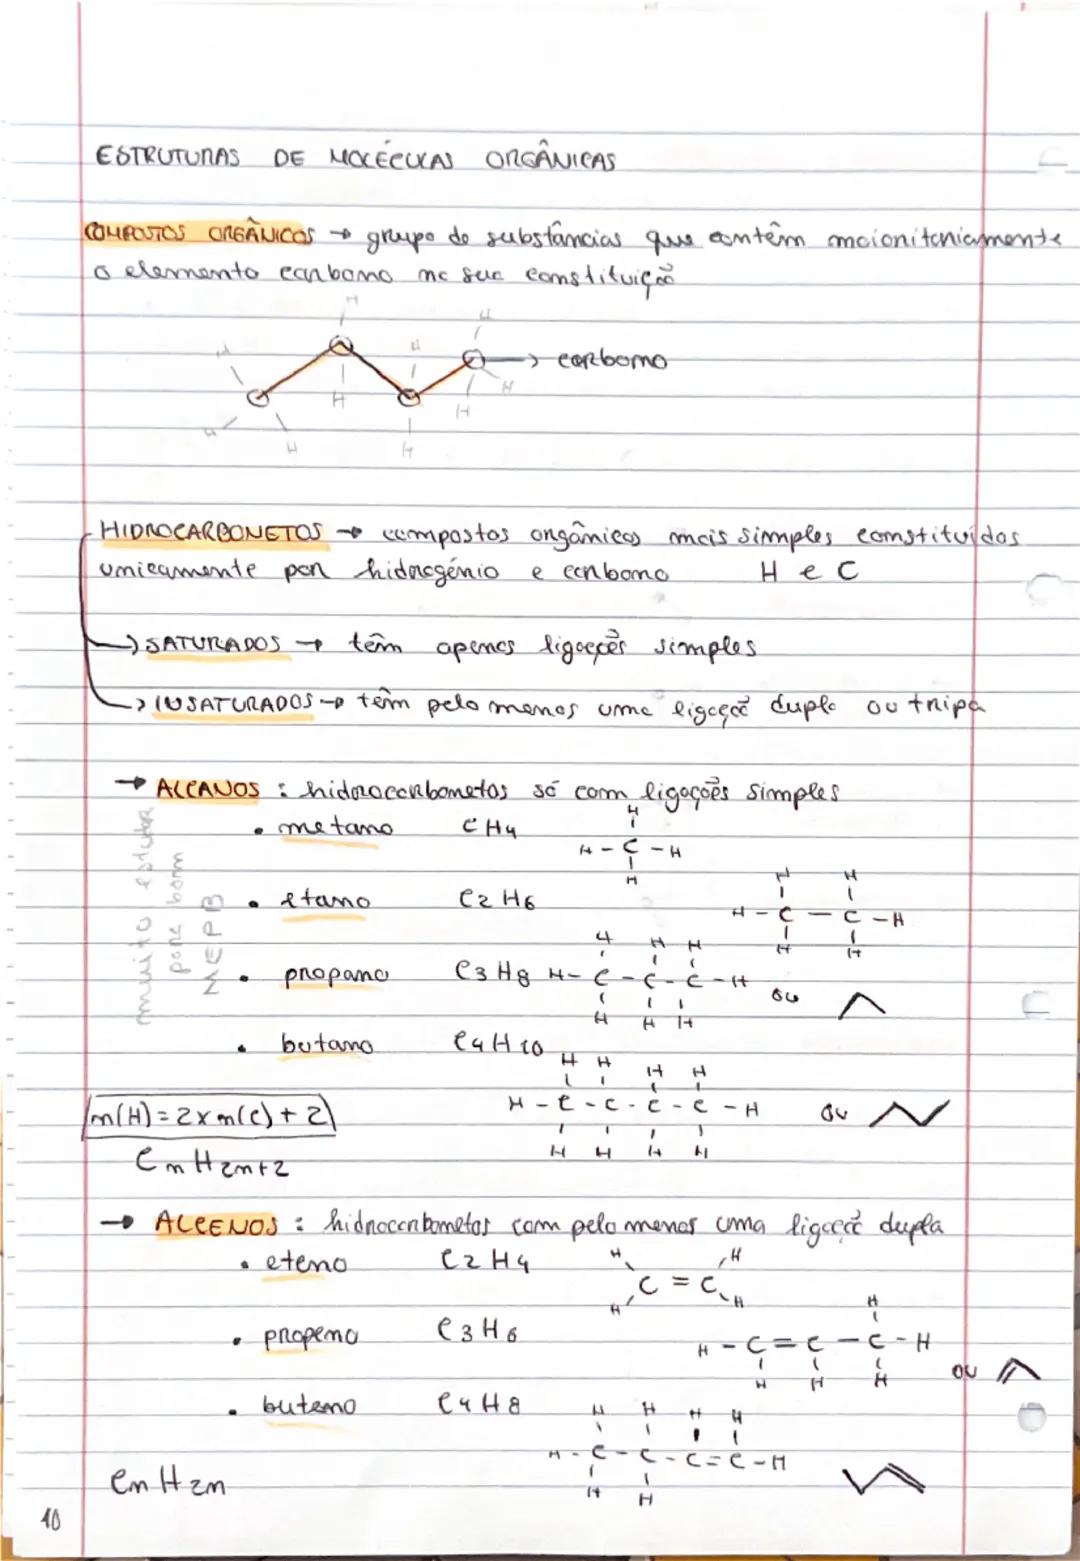 ESTRUTURAS DE MOLÉCULAS ORGÂNICAS
COMPOSTOS ORGÂNICOS → grupo de substâncias que contêm maioritariamente
o elemento carbono na sua constituição
H H
H H → carbono
H H
H H H H
HIDROCARBONETOS → compostos orgânicos mais simples constituídos
unicamente por hidrogénio e carbono H e C
→ SATURADOS → têm apenas ligações simples
→ INSATURADOS → têm pelo menos uma ligação dupla ou tripa
→ ALCANOS : hidrocarbonetos só com ligações simples
muito estudar
para bom
MEPB
H
• metano CH4 H - C - H
H
H H
• etano C2H6 H - C - C - H
H H
H H H
• propano C3H8 H - C - C - C - H ou
H H H
• butano C4H10
H H H H
n(H) = 2 x n(C) + 2 H - C - C - C - C - H ou
H H H H
CnH2n+2
→ ALCENOS : hidrocarbonetos com pelo menos uma ligação dupla
• eteno C2H4 H H
C = C
H H
H
• propeno C3H6 H - C = C - C - H
H H H ou
• buteno C4H8 H H H H
H - C - C - C = C - H
CnH2n H H
10